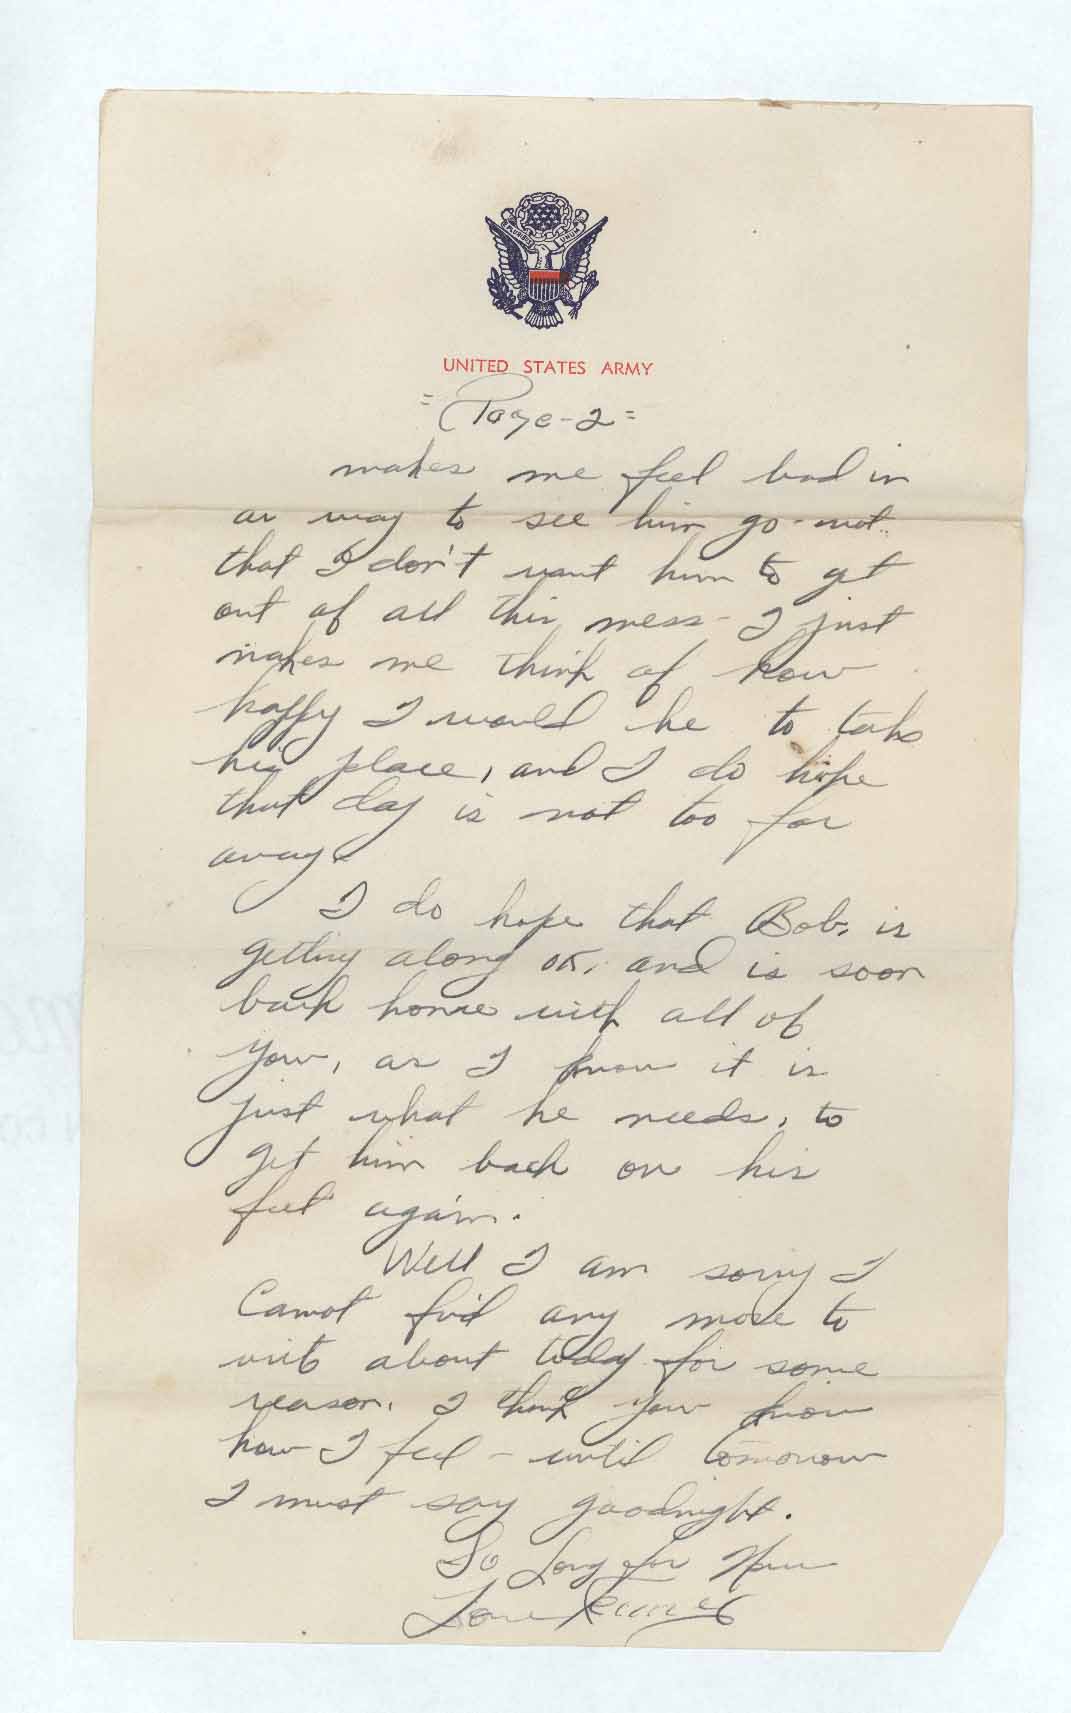 E PLURIBUS UNUM
UNITED STATES ARMY
= Page - 2 =
makes me feel bad in
a way to see him go - not
that I don't want him to get
out of all this mess - I just
makes me think of how
happy I would be to take
his place, and I do hope
that day is not too far
away.
I do hope that Bob, is
getting along OK, and is soon
back home with all of
you, as I know it is
just what he needs, to
get him back on his
feet again.
Well I am sorry I
Cannot find any more to
write about today for some
reason. I think you know
how I feel - until tomorrow
I must say goodnight.
So Long for Now
Love